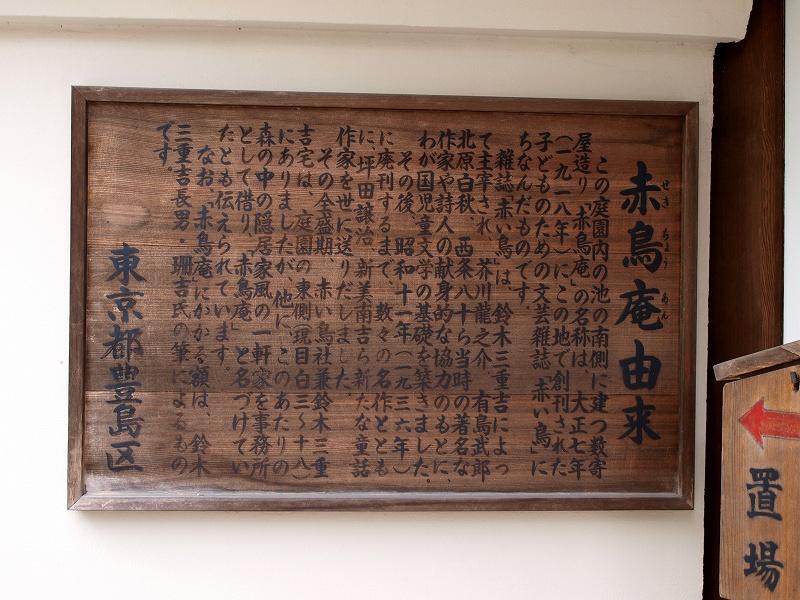 赤鳥庵由来
せき ちょう あん
この庭園内の池の南側に建つ数寄
屋造り「赤鳥庵」の名称は、大正七年
(一九一八年)にこの地で創刊された
子どものための文芸雑誌「赤い鳥」に
ちなんだものです。
雑誌「赤い鳥」は、鈴木三重吉によっ
て主宰され、芥川龍之介、有島武郎
北原白秋、西条八十ら当時の著名な
作家や詩人の献身的な協力のもとに、
わが国児童文学の基礎を築きました。
その後、昭和十一年(一九三六年)
に廃刊するまで、数々の名作ととも
に、坪田譲治、新美南吉ら新たな童話
作家を世に送りだしました。
その全盛期、赤い鳥社兼鈴木三重
吉宅は、庭園の東側(現目白三〜十八)
にありましたが、他に、このあたりの
森の中の隠居家風の一軒家を事務所
として借り、「赤鳥庵」と名づけてい
たとも伝えられています。
なお、「赤鳥庵」にかかる額は、鈴木
三重吉長男・珊吉氏の筆によるもの
です。
東京都豊島区
置場